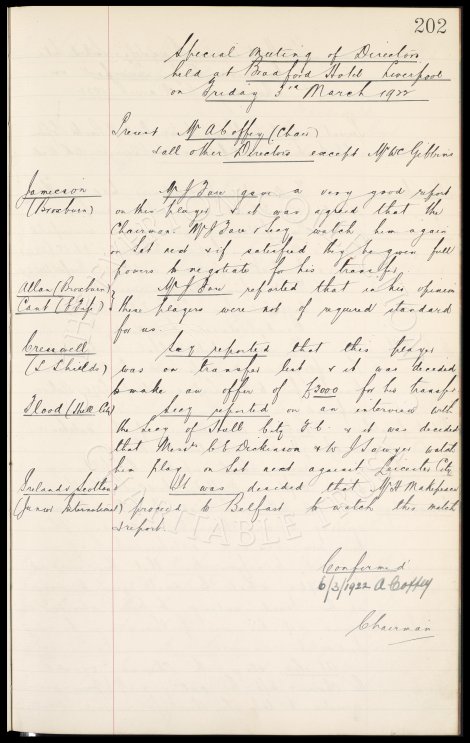 202
Special Meeting of Directors
held at Bradford Hotel Liverpool
on Friday 3rd March 1922
Present Mr A Coffey (Chair)
& all other Directors except Mr W C Gibbins
Jamieson (Broxburn)
Mr J Fare gave a very good report
on this player & it was agreed that the
Chairman Mr J Fare & Secy watch him again
on Sat next & if satisfied they be given full
powers to negotiate for his transfer
Allan (Broxburn)
Cant (E Fife)
Mr J Fare reported that in his opinion
these players were not of required standard
for us.
Cresswell
(S Shields)
Secy reported that this player
was on transfer list & it was decided
to make an offer of £3000 for his transfer
Flood (Hull City)
Secy reported on an interview with
the Secy of Hull City F.C. & it was decided
that Messrs B E Dickinson & W J Sawyer watch
him play on Sat next against Leicester City
Ireland v Scotland
(Junior International)
It was decided that Mr H Makepeace
proceed to Belfast to watch this match
& report.
Confirmed
6/3/1922 A Coffey
Chairman